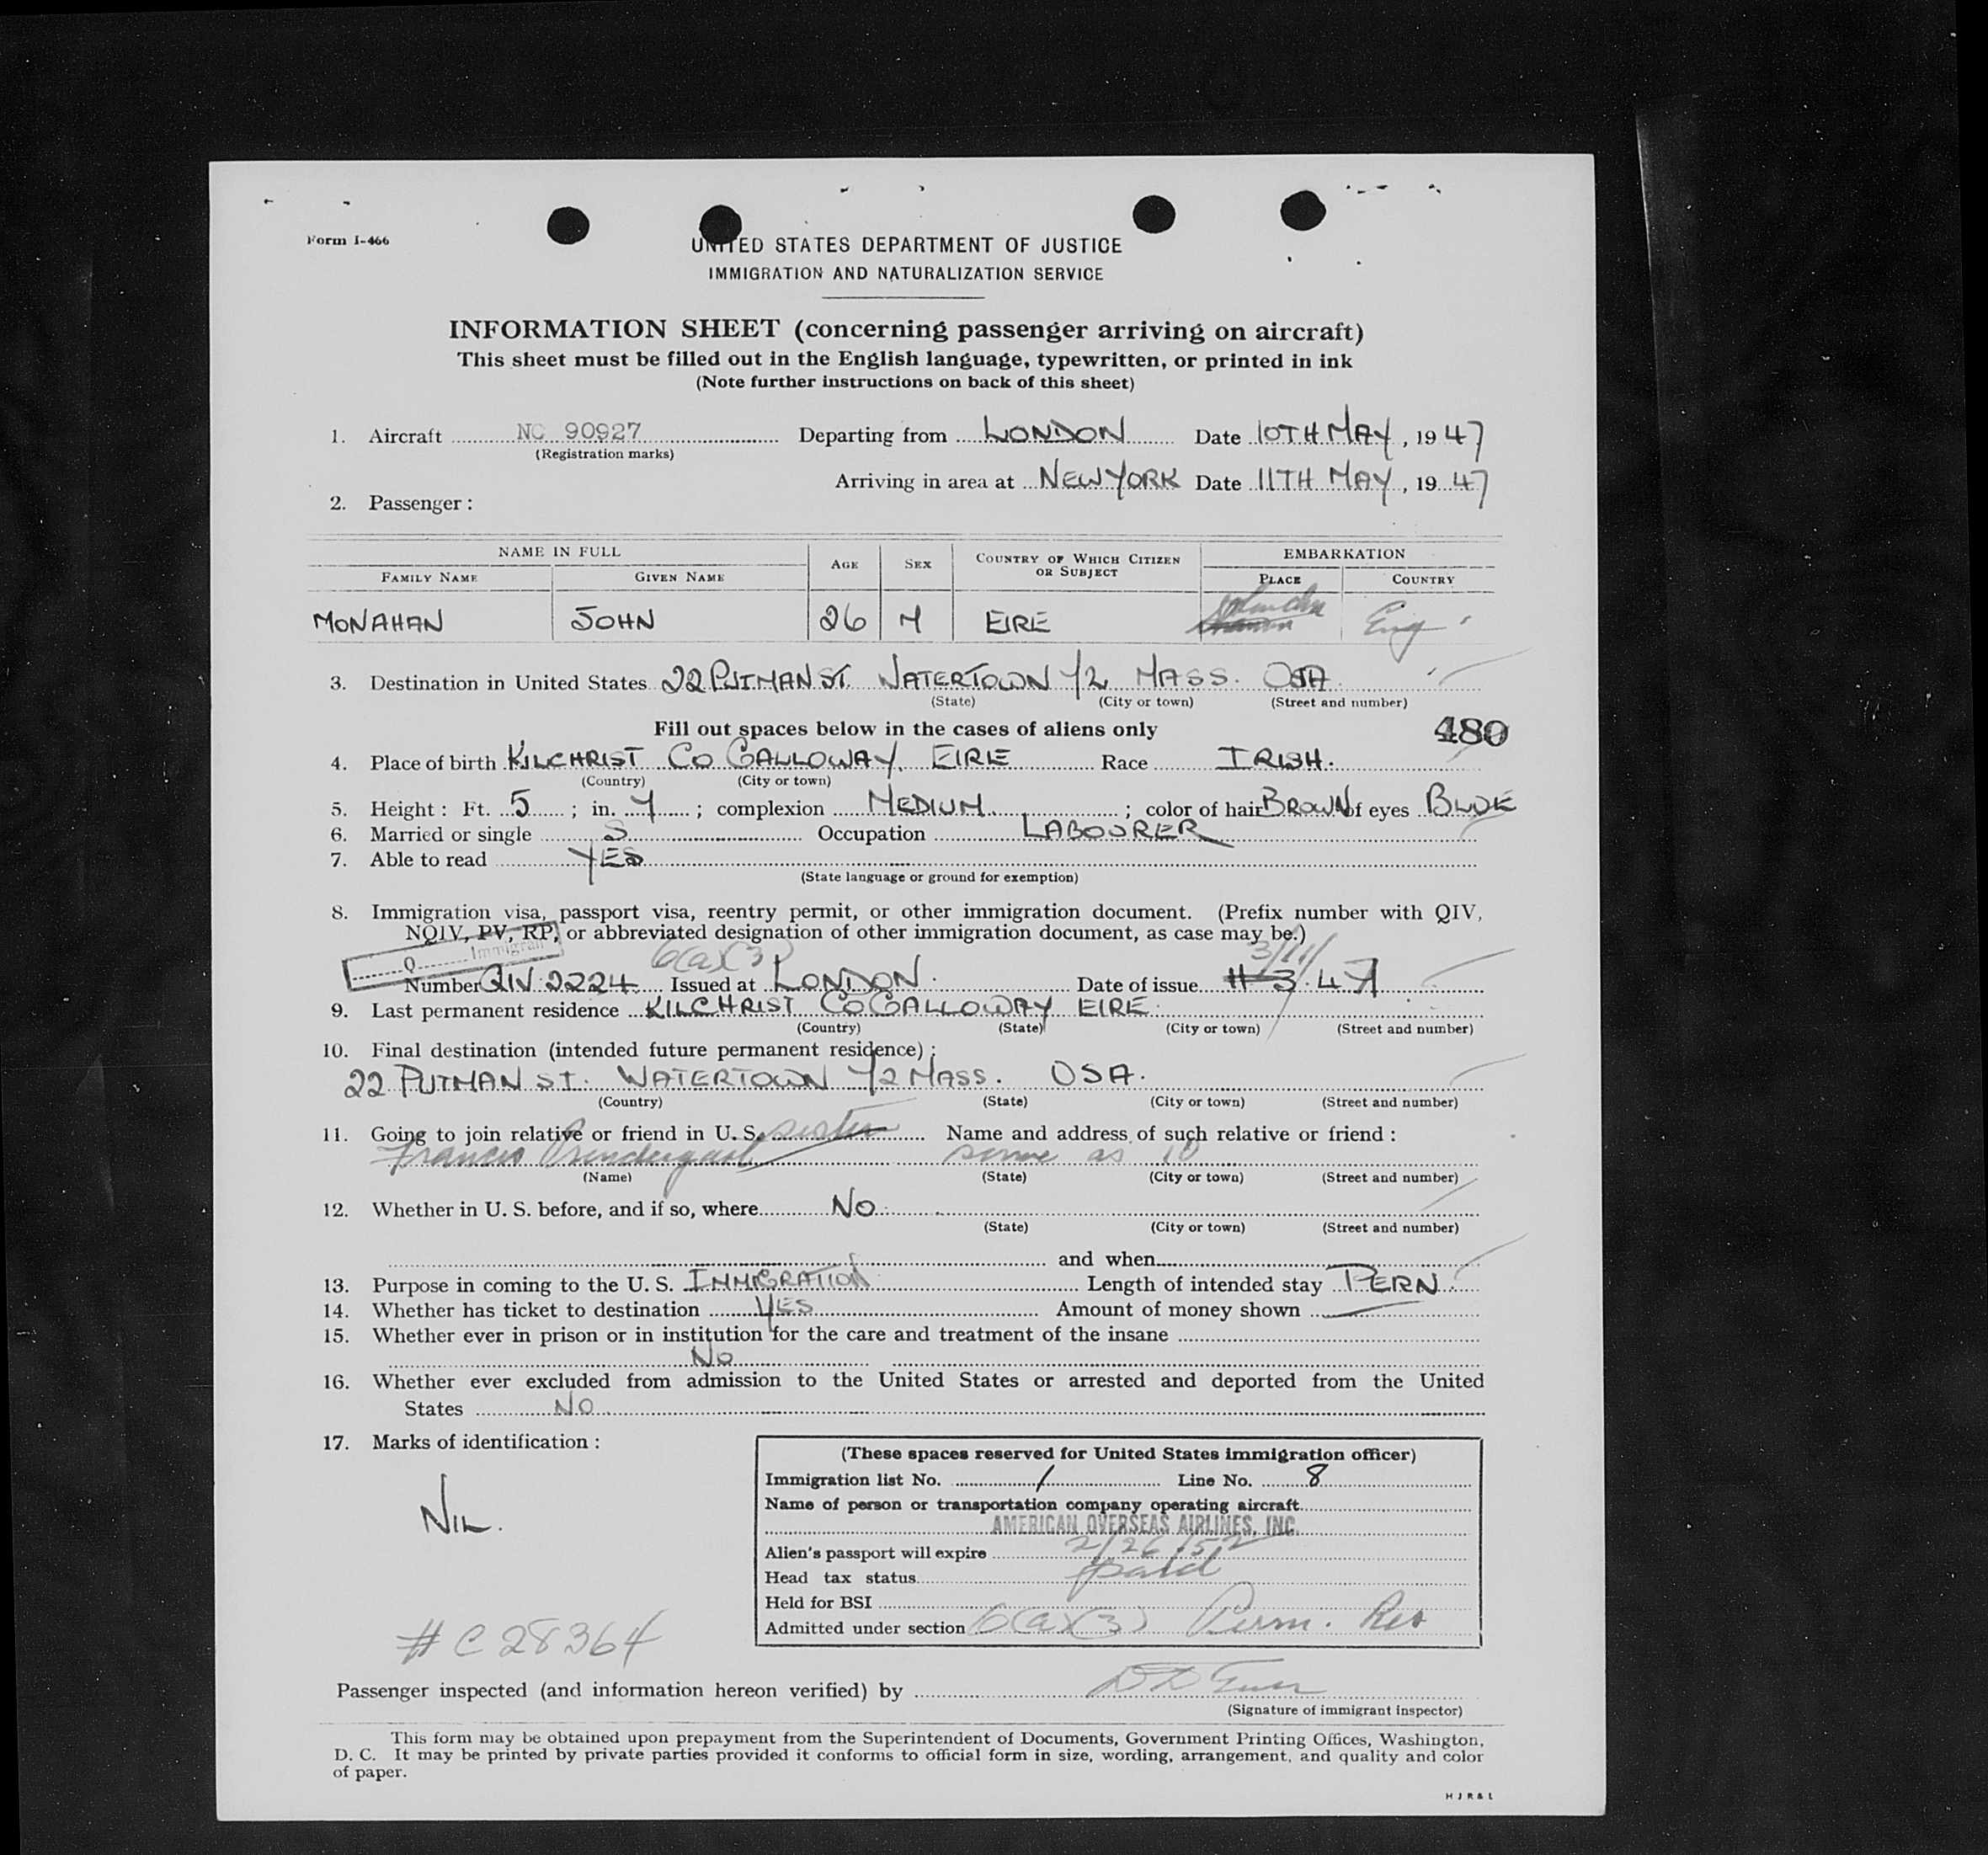 Form I-466
UNITED STATES DEPARTMENT OF JUSTICE
IMMIGRATION AND NATURALIZATION SERVICE
INFORMATION SHEET (concerning passenger arriving on aircraft)
This sheet must be filled out in the English language, typewritten, or printed in ink
(Note further instructions on back of this sheet)
1. Aircraft NC 90927 Departing from LONDON Date 10TH MAY, 1947
(Registration marks)
Arriving in area at NEW YORK Date 11TH MAY, 1947
2. Passenger:
NAME IN FULL AGE SEX COUNTRY OF WHICH CITIZEN OR SUBJECT EMBARKATION
FAMILY NAME GIVEN NAME PLACE COUNTRY
MONAHAN JOHN 26 M EIRE London Eng
3. Destination in United States 22 PUTMAN ST. WATERTOWN 72 MASS. USA
(State) (City or town) (Street and number)
Fill out spaces below in the cases of aliens only 480
4. Place of birth KILCHRIST CO GALLOWAY. EIRE Race IRISH.
(Country) (City or town)
5. Height: Ft. 5; in. 7; complexion MEDIUM; color of hair BROWN of eyes BLUE
6. Married or single S Occupation LABOURER
7. Able to read YES
(State language or ground for exemption)
8. Immigration visa, passport visa, reentry permit, or other immigration document. (Prefix number with QIV,
NQIV, PV, RP, or abbreviated designation of other immigration document, as case may be.)
Q Immigrant 6(a)(3) 3/11/
Number QIV 2224 Issued at LONDON. Date of issue 11 3. 47
9. Last permanent residence KILCHRIST CO GALLOWAY EIRE.
(Country) (State) (City or town) (Street and number)
10. Final destination (intended future permanent residence):
22 PUTMAN ST. WATERTOWN 72 MASS. USA.
(Country) (State) (City or town) (Street and number)
11. Going to join relative or friend in U. S. sister Name and address of such relative or friend:
Francis Prendergast same as 10
(Name) (State) (City or town) (Street and number)
12. Whether in U. S. before, and if so, where NO
(State) (City or town) (Street and number)
and when
13. Purpose in coming to the U. S. IMMIGRATION Length of intended stay PERM.
14. Whether has ticket to destination YES Amount of money shown
15. Whether ever in prison or in institution for the care and treatment of the insane
NO
16. Whether ever excluded from admission to the United States or arrested and deported from the United
States NO
17. Marks of identification:
NIL.
(These spaces reserved for United States immigration officer)
Immigration list No. 1 Line No. 8
Name of person or transportation company operating aircraft
AMERICAN OVERSEAS AIRLINES, INC.
Alien's passport will expire 2/26/52
Head tax status paid
Held for BSI
Admitted under section 6(a)(3) Perm. Res
# C 28364
Passenger inspected (and information hereon verified) by
(Signature of immigrant inspector)
This form may be obtained upon prepayment from the Superintendent of Documents, Government Printing Offices, Washington,
D. C. It may be printed by private parties provided it conforms to official form in size, wording, arrangement, and quality and color
of paper.
H J R & L